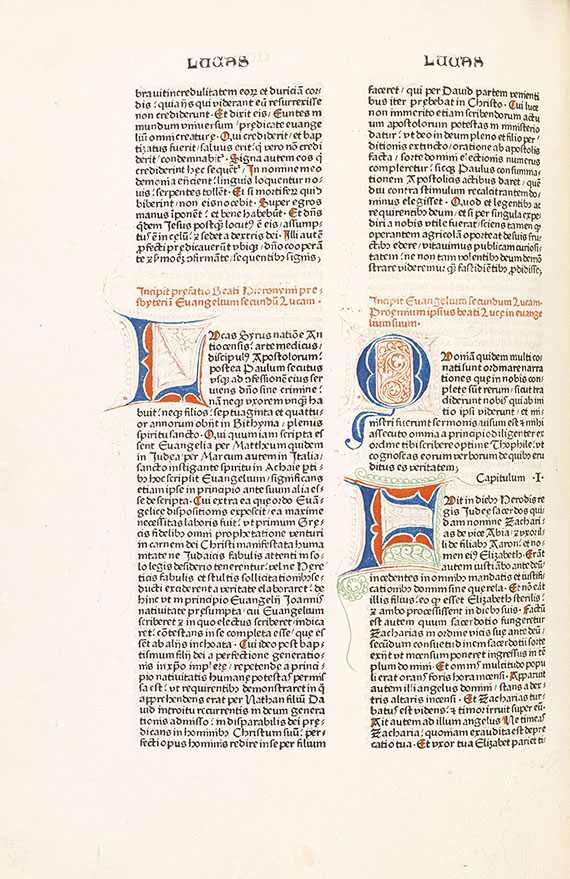 LUCAS
bra vit incredulitatem eorꝝ et duriciam cor⸗
dis: quia ijs qui viderant eū resurrexisse
non crediderunt. Et dixit eis, Euntes in
mundum universum, predicate evange
lium omni creature. Qui crediderit, et bap
tizatus fuerit, salvus erit. qui vero nō credi
derit, condemnabit᷑. Signa autem eos qͥ
crediderint hec sequēt᷑, In nomine meo
demonia eiicient. linguis loquentur no⸗
vis. serpentes tollēt. Et si mortiferū quid
biberint, non eis nocebit. Super egros
manus iponēt: et bene habebūt. Et dn̄s
qͥdem Jesus postqꝫ locutꝰ ē eis, assump⸗
tus ē in celū: ⁊ sedet a dextris dei. Illi autē
pfecti predicaverūt vbiqꝫ, dn̄o cooperā
te ⁊ smonē ꝯfirmāte, sequentibꝰ signis,
Incipit prefatio Beati Hieronymi pre⸗
sbyteri ī Evangelium secundū Lucam.
LVcas Syrus natiōe An
tiocensis, arte medicus,
discipulꝰ Apostolorum.
postea Paulum secutus
vsqꝫ ad ꝯfessionē eius ser
viens dn̄o sine crimine.
nā neqꝫ vxorem vnqꝫ ha
buit, neqꝫ filios, septuaginta et quattu⸗
or annorum obijt in Bithyma, plenus
spiritu sancto. Qui quum iam scripta es
sent Evangelia, per Mattheum quidem
in Judea, per Marcum autem in Italia,
sancto instigante spiritu in Achaie pti⸗
bꝰ hoc scripsit Evangelium, significans
etiam ipse in principio ante suum alia es⸗
se descripta. Cui extra ea que ordo Euā⸗
gelice dispositions exposcit, ea maxime
necessitas laboris fuit, vt primum Gre⸗
cis fidelibꝰ omni prophetatione venturi
in carnem dei Christi manifestata huma
nitate, ne Judaicis fabulis attenti, in so⸗
lo legis desiderio tenerentur, vel ne Here⸗
ticis fabulis et stultis sollicitationibꝰ se⸗
ducti excederent a veritate, elaboraret. de
hinc vt in principio Evangelij Joannis
nativitate presumpta, cui Evangelium
scriberet ⁊ in quo electus scriberet, indica
ret. ꝯtestans in se completa esse, que es
sent ab alijs inchoata. Cui ideo post bap⸗
tismum filij dei a perfectione generatio⸗
nis in xp̄o impletę, repetende a princi⸗
pio nativitatis humane potestas permis
sa est. vt requirentibꝰ demonstraret in q̄
apprehendens erat per Nathan filiū Da
vid introitu recurrentis in deum genera
tionis admisso, indisparabilis dei pre⸗
dicans in hominibꝰ Christum suū, per⸗
fecti opus hominis redire in se per filium
LUCAS
faceret, qui per David partem venienti
bus iter prebebat in Christo. Cui luce
non immerito etiam scribendorum actuū
apostolorum potestas in ministerio
datur. vt deo in deum pleno et filio per⸗
ditionis extincto, oratione ab apostolis
facta, sorte domini electionis numerus
compleretur. sicqꝫ Paulus consumma⸗
tionem Apostolicis actibus daret, quē
diu contra stimulum recalcitrantem do⸗
minus elegisset. Quod et legentibꝰ ac
requirentibꝰ deum, et si per singula expe⸗
diri a nobis vtile fuerat, sciens tamen qꝫ
operantem agricolā oporteat de suis fru⸗
ctibꝰ edere, vitavimus publicam curiosi⸗
tatem. ne non tam volentibꝰ deum demō
strare videremur, qꝫ fastidiētibꝰ, pdidisse,
Incipit Evangelium secundum Lucam.
Proemium ipsius beati Luce in evange
lium suum.
QVoniā quidem multi co⸗
nati sunt ordinare narra
tiones que in nobis com⸗
plete sūt rerum, sicut tra
diderunt nobis qui ab ini
tio ipsi viderunt, et mi⸗
nistri fuerunt sermonis, visum est ⁊ mihi
assecuto omnia a principio diligenter ex
ordine tibi scribere optime Thophile, vt
cognoscas eorum verborum de quibꝰ eru
ditus es veritatem,
Capitulum .I.
FVit in diebꝰ Herodis re
gis Judee, sacerdos qui⸗
dam nomine Zachari⸗
as de vice Abia, ⁊ vxor il
li de filiabꝰ Aaron, et no⸗
men eiꝰ Elizabeth. Erāt
autem iusti ambo ante deū,
incedentes in omnibꝰ mandatis et iustifi⸗
cationibꝰ domini sine querela. Et nō eāt
illis filius, eo qꝫ esset Elizabeth sterilis,
⁊ ambo processissent in diebꝰ suis. Factū
est autem quum sacerdotio fungeretur
Zacharias in ordine vicis sue ante deū,
secūdum consuetudinem sacerdotij sorte
exijt vt incensum poneret ingressus in tē
plum domini. Et omnis multitudo popu
li erat orans foris hora incensi. Apparuit
autem illi angelus domini, stans a dex⸗
tris altaris incensi. Et Zacharias tur⸗
batus est videns, ⁊ timor irruit super eū.
Ait autem ad illum angelus, Ne timeas
Zacharia, quoniam exaudita est depre
catio tua. Et vxor tua Elizabet pariet ti⸗